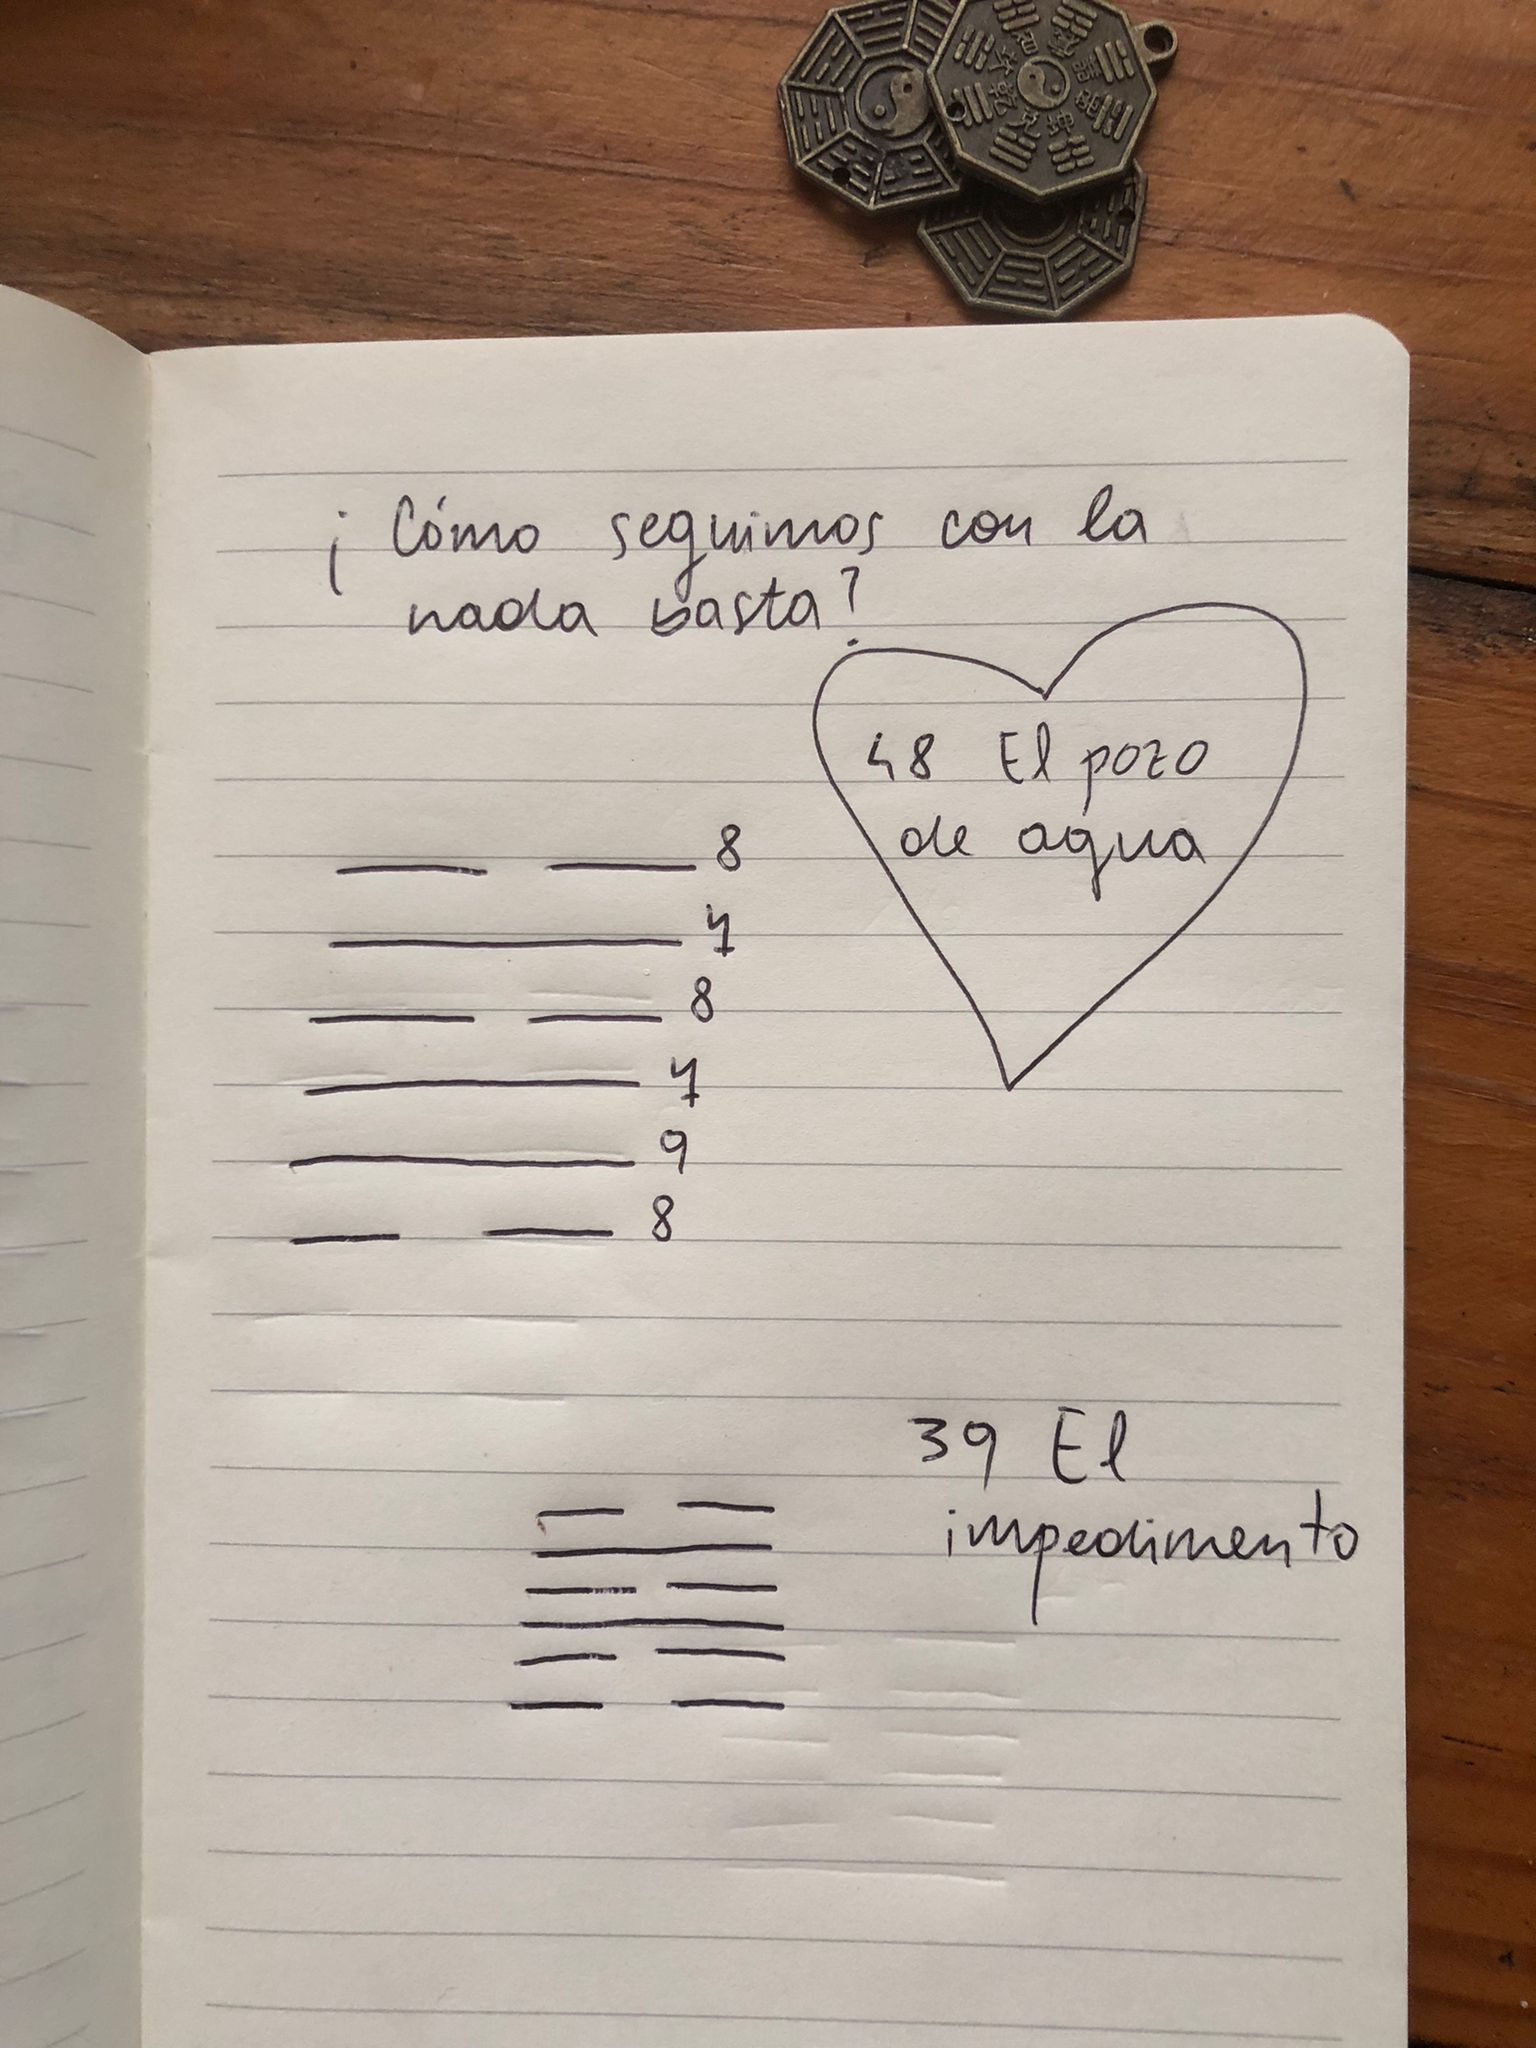 ¡Cómo seguimos con la
nada basta?
48 El pozo
de agua
8
7
8
7
9
8
39 El
impedimento